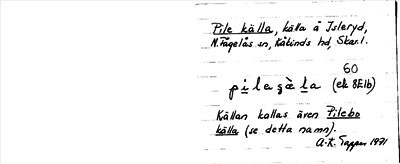 Pile källa, källa å Isleryd,
N. Fågelås sn, Kåkinds hd, Skar.l.
60
pilagàla (ek 8E1b)
Källan kallas även Pilebo
källa (se detta namn).
A.-K. Tapper 1971